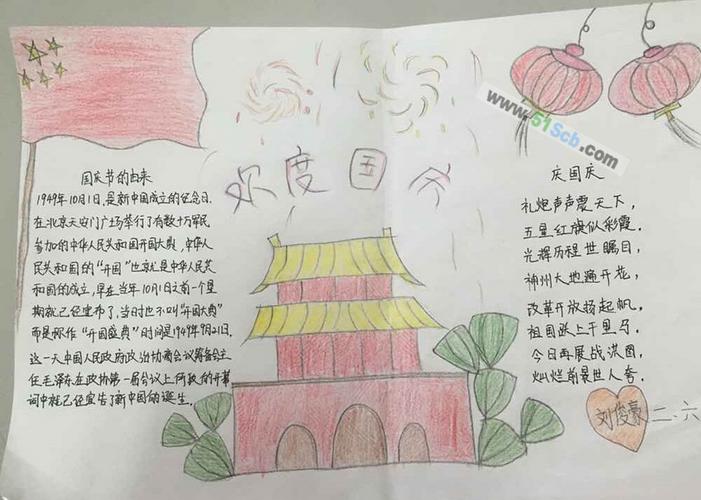 欢度国庆
国庆节的由来
1949年10月1日,是新中国成立的纪念日.
在北京天安门广场举行了有数十万军民
参加的中华人民共和国开国大典,中华人
民共和国的"开国"也就是中华人民共
和国的成立,早在当年10月1日之前一个星
期就已经宣布了,当时也不叫"开国大典"
而是称作"开国盛典"时间是1949年9月21日.
这一天中国人民政府政治协商会议筹备会主
任毛泽东在政协第一届会议上所致的开幕
词中就已经宣告了新中国的诞生.
庆国庆
礼炮声声震天下,
五星红旗似彩霞.
光辉历程世瞩目,
神州大地遍开花,
改革开放扬起帆,
祖国跃上千里马,
今日再展战洪图,
灿烂前景世人夸.
刘俊豪 二、六
www.51Scb.com